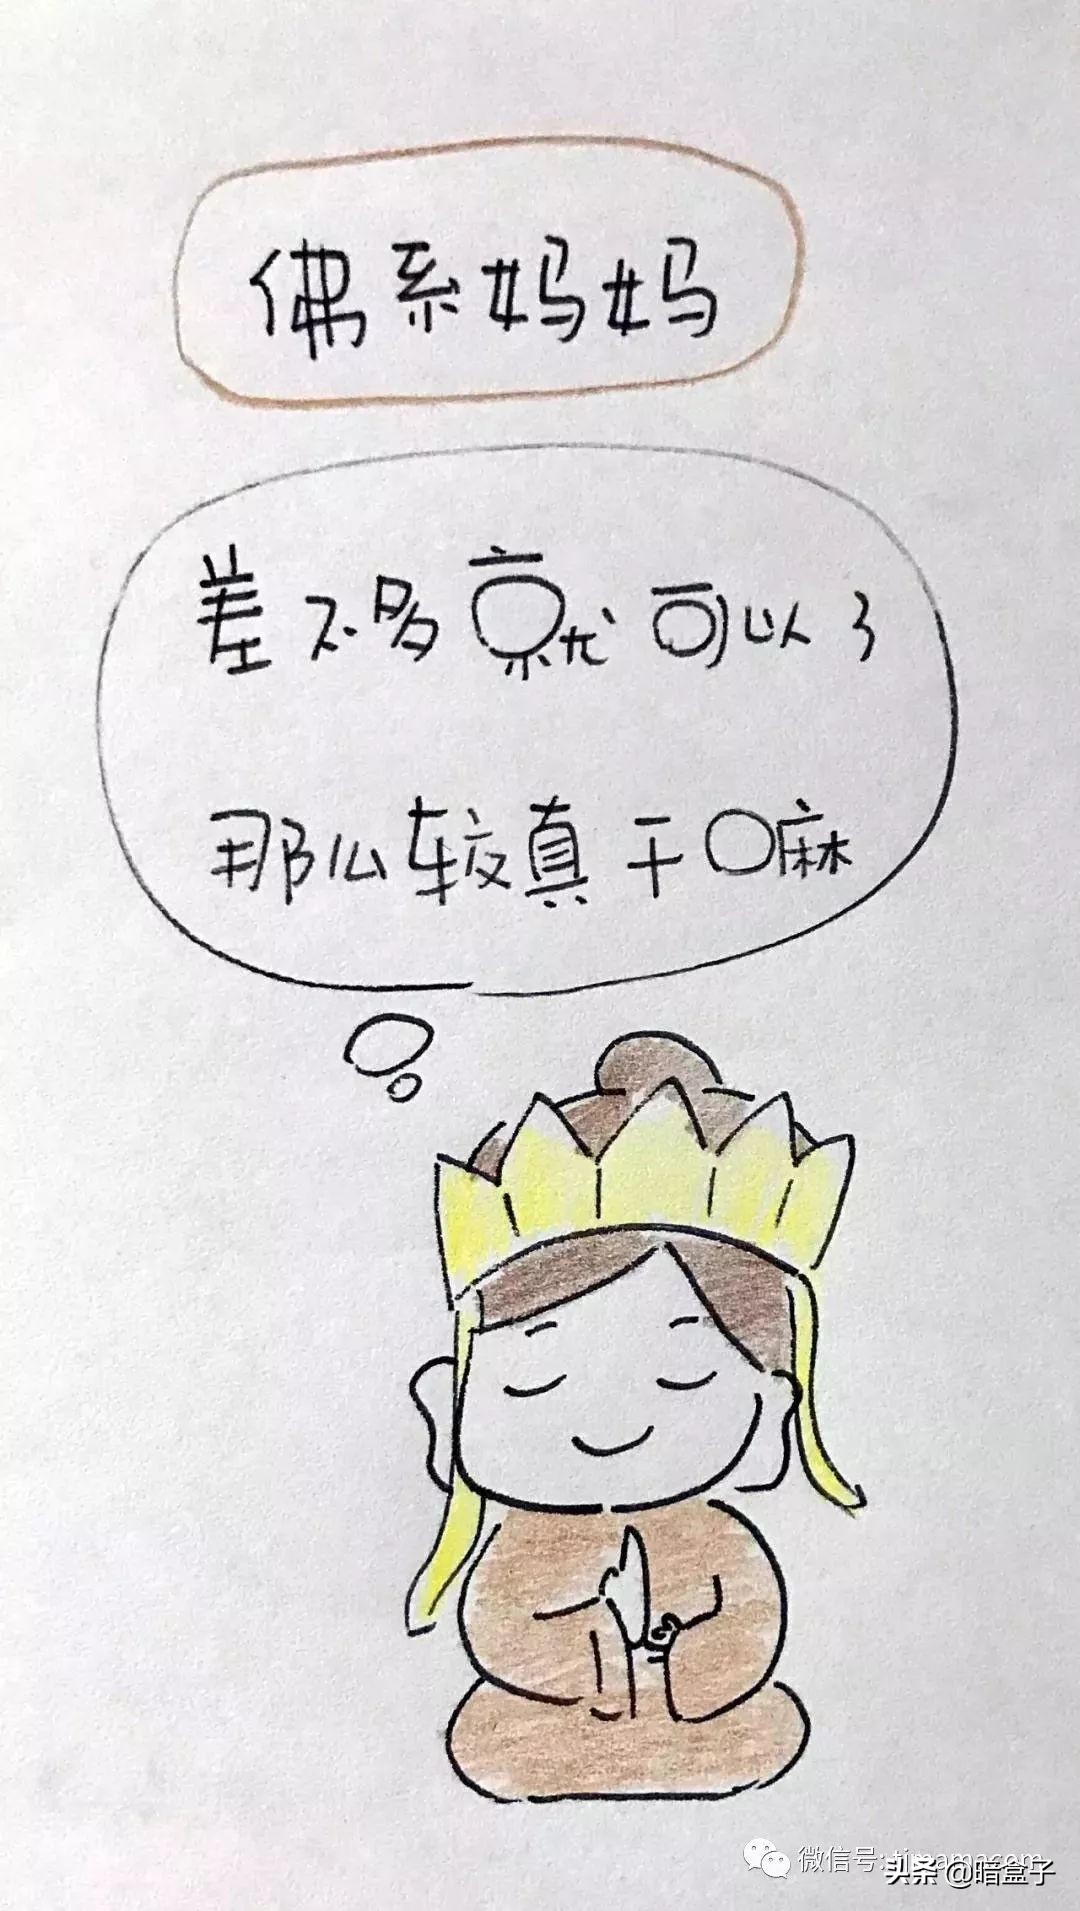 佛系妈妈
差不多就可以了
那么较真干嘛
微信号: timamacom
头条 @暗盒子